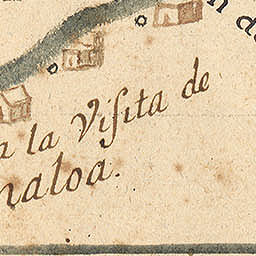 la Viſita de
naloa.